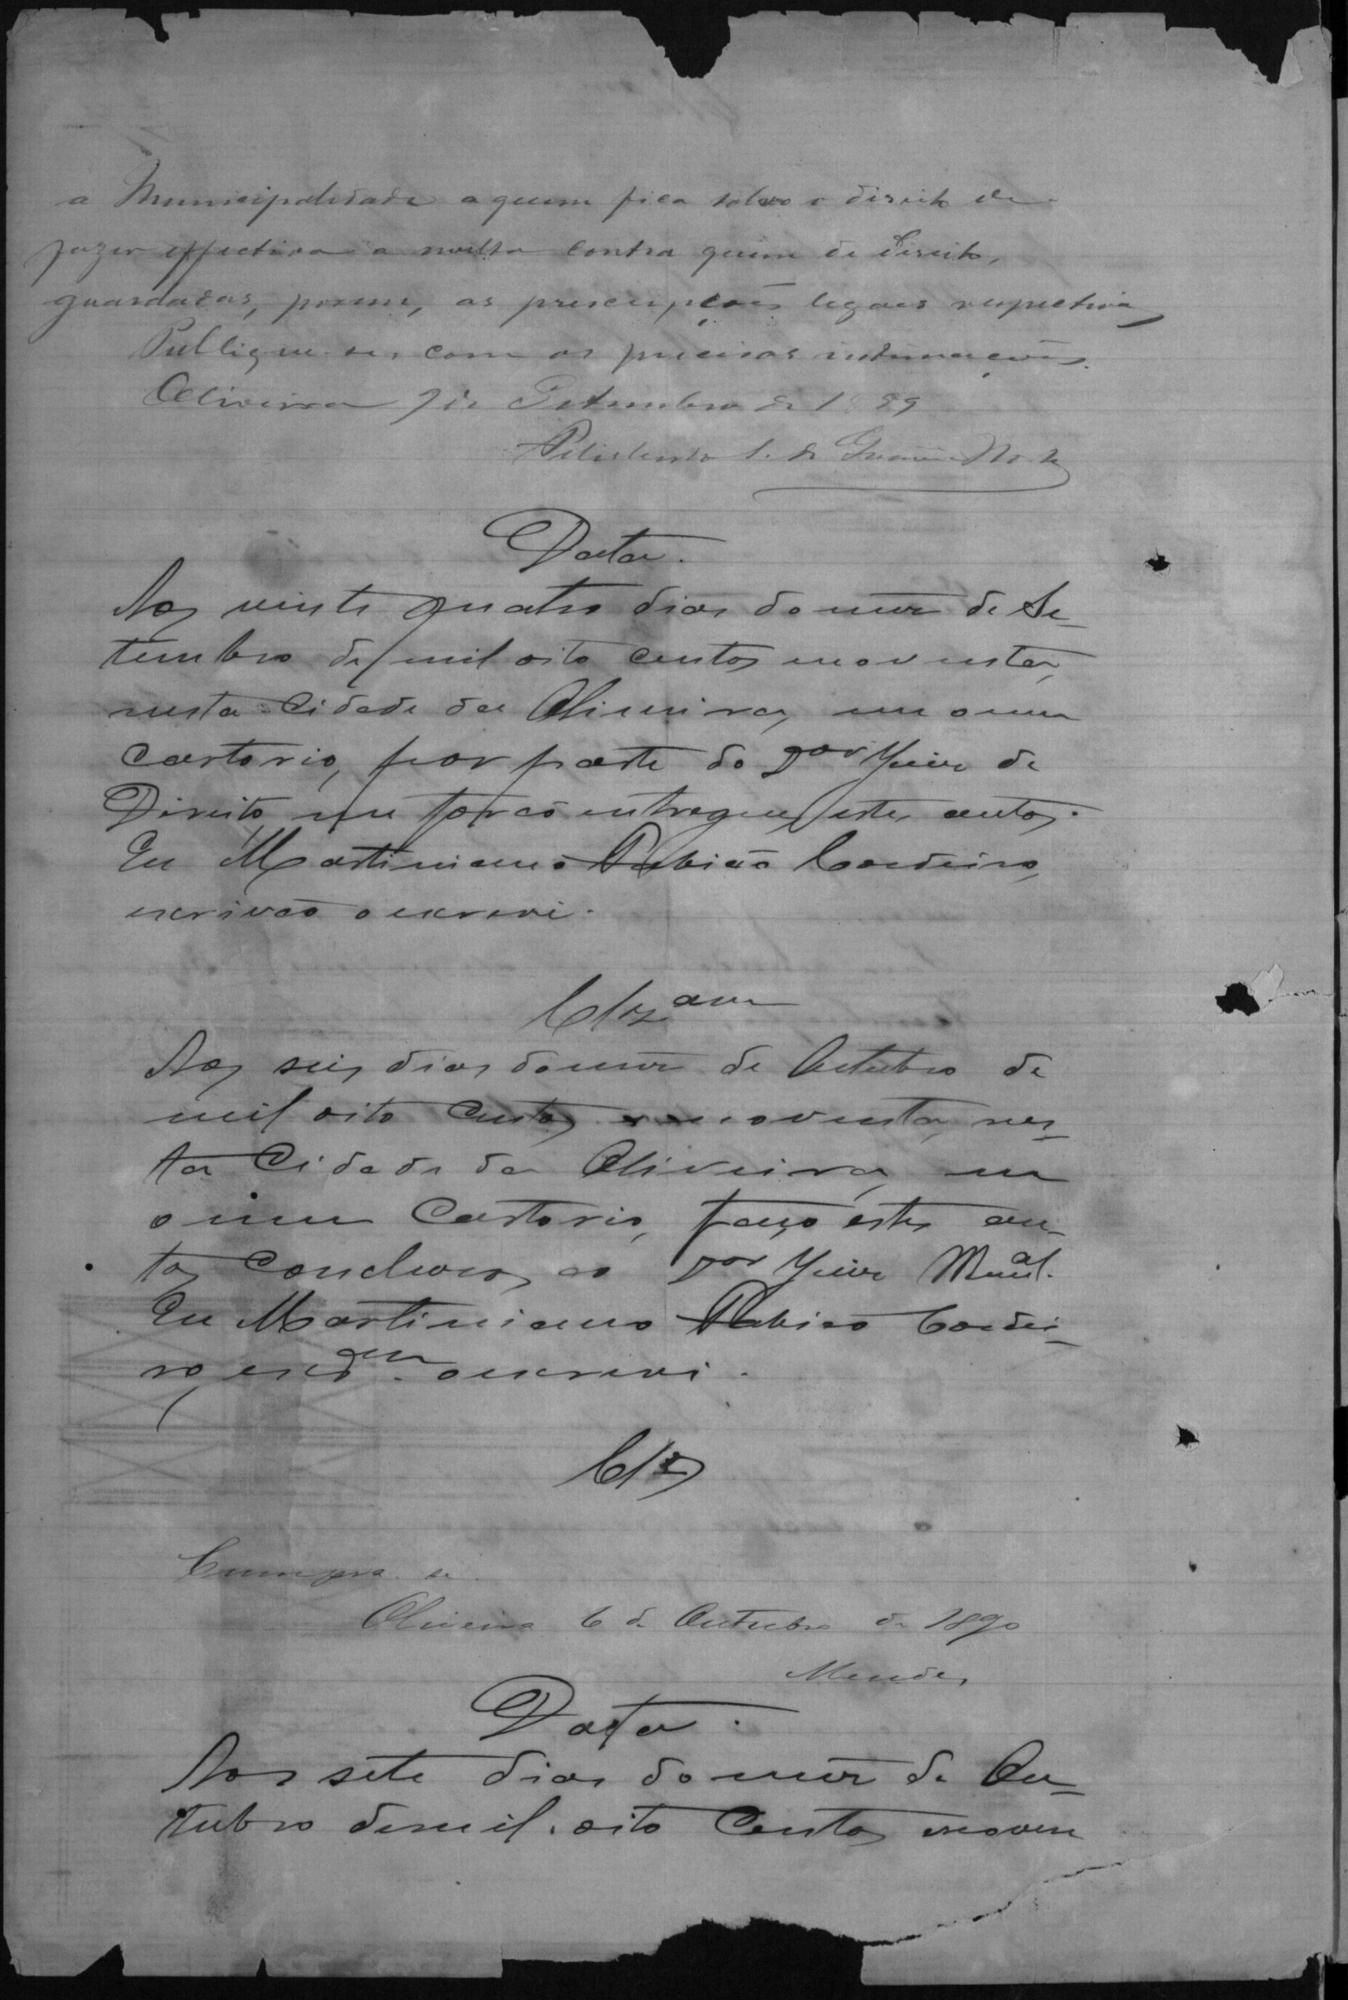 a Municipalidade a quem fica salvo o direito de
fazer effectiva a multa contra quem de direito,
guardadas, porem, as prescripções legaes respectivas
Publique-se, com as precisas intimações.
Oliveira 9 de Setembro de 1889
Data.
Aos vinte quatro dias do mez de Se-
tembro de mil oito centos e noventa,
nesta Cidade da Oliveira, em o meu
Cartorio, por parte do Dor Juiz de
Direito me forão entregues estes autos.
Eu Martiniano Fabião Cordeiro,
escrivão o escrevi.
Clzam
Aos seis dias do mez de Outubro de
mil oito centos e noventa, nes-
ta Cidade da Oliveira, em
o meu Cartorio, faço estes au-
tos conclusos ao Dor Juiz Mual.
Eu Martiniano Fabião Cordei-
ro, escram. o escrevi.
Clz
Cumpra-se.
Oliveira 6 de Outubro de 1890
Mendes
Data.
Aos sete dias do mez de Ou-
tubro de mil oito centos e noven